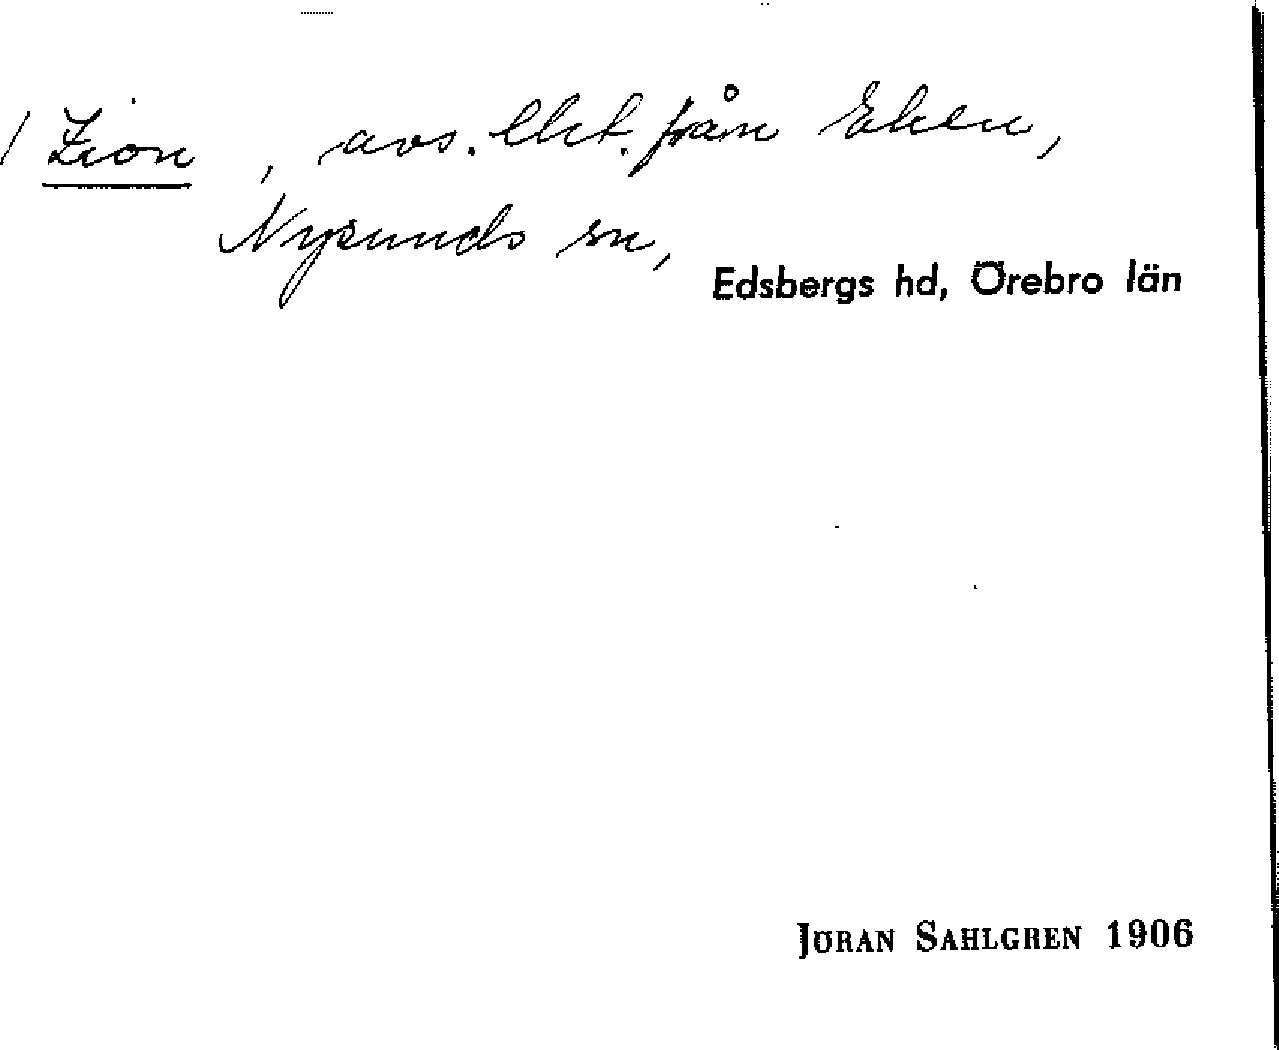 / Zion, avs. lht. från Eken,
Nysunds sn,
Edsbergs hd, Örebro län
JÖRAN SAHLGREN 1906